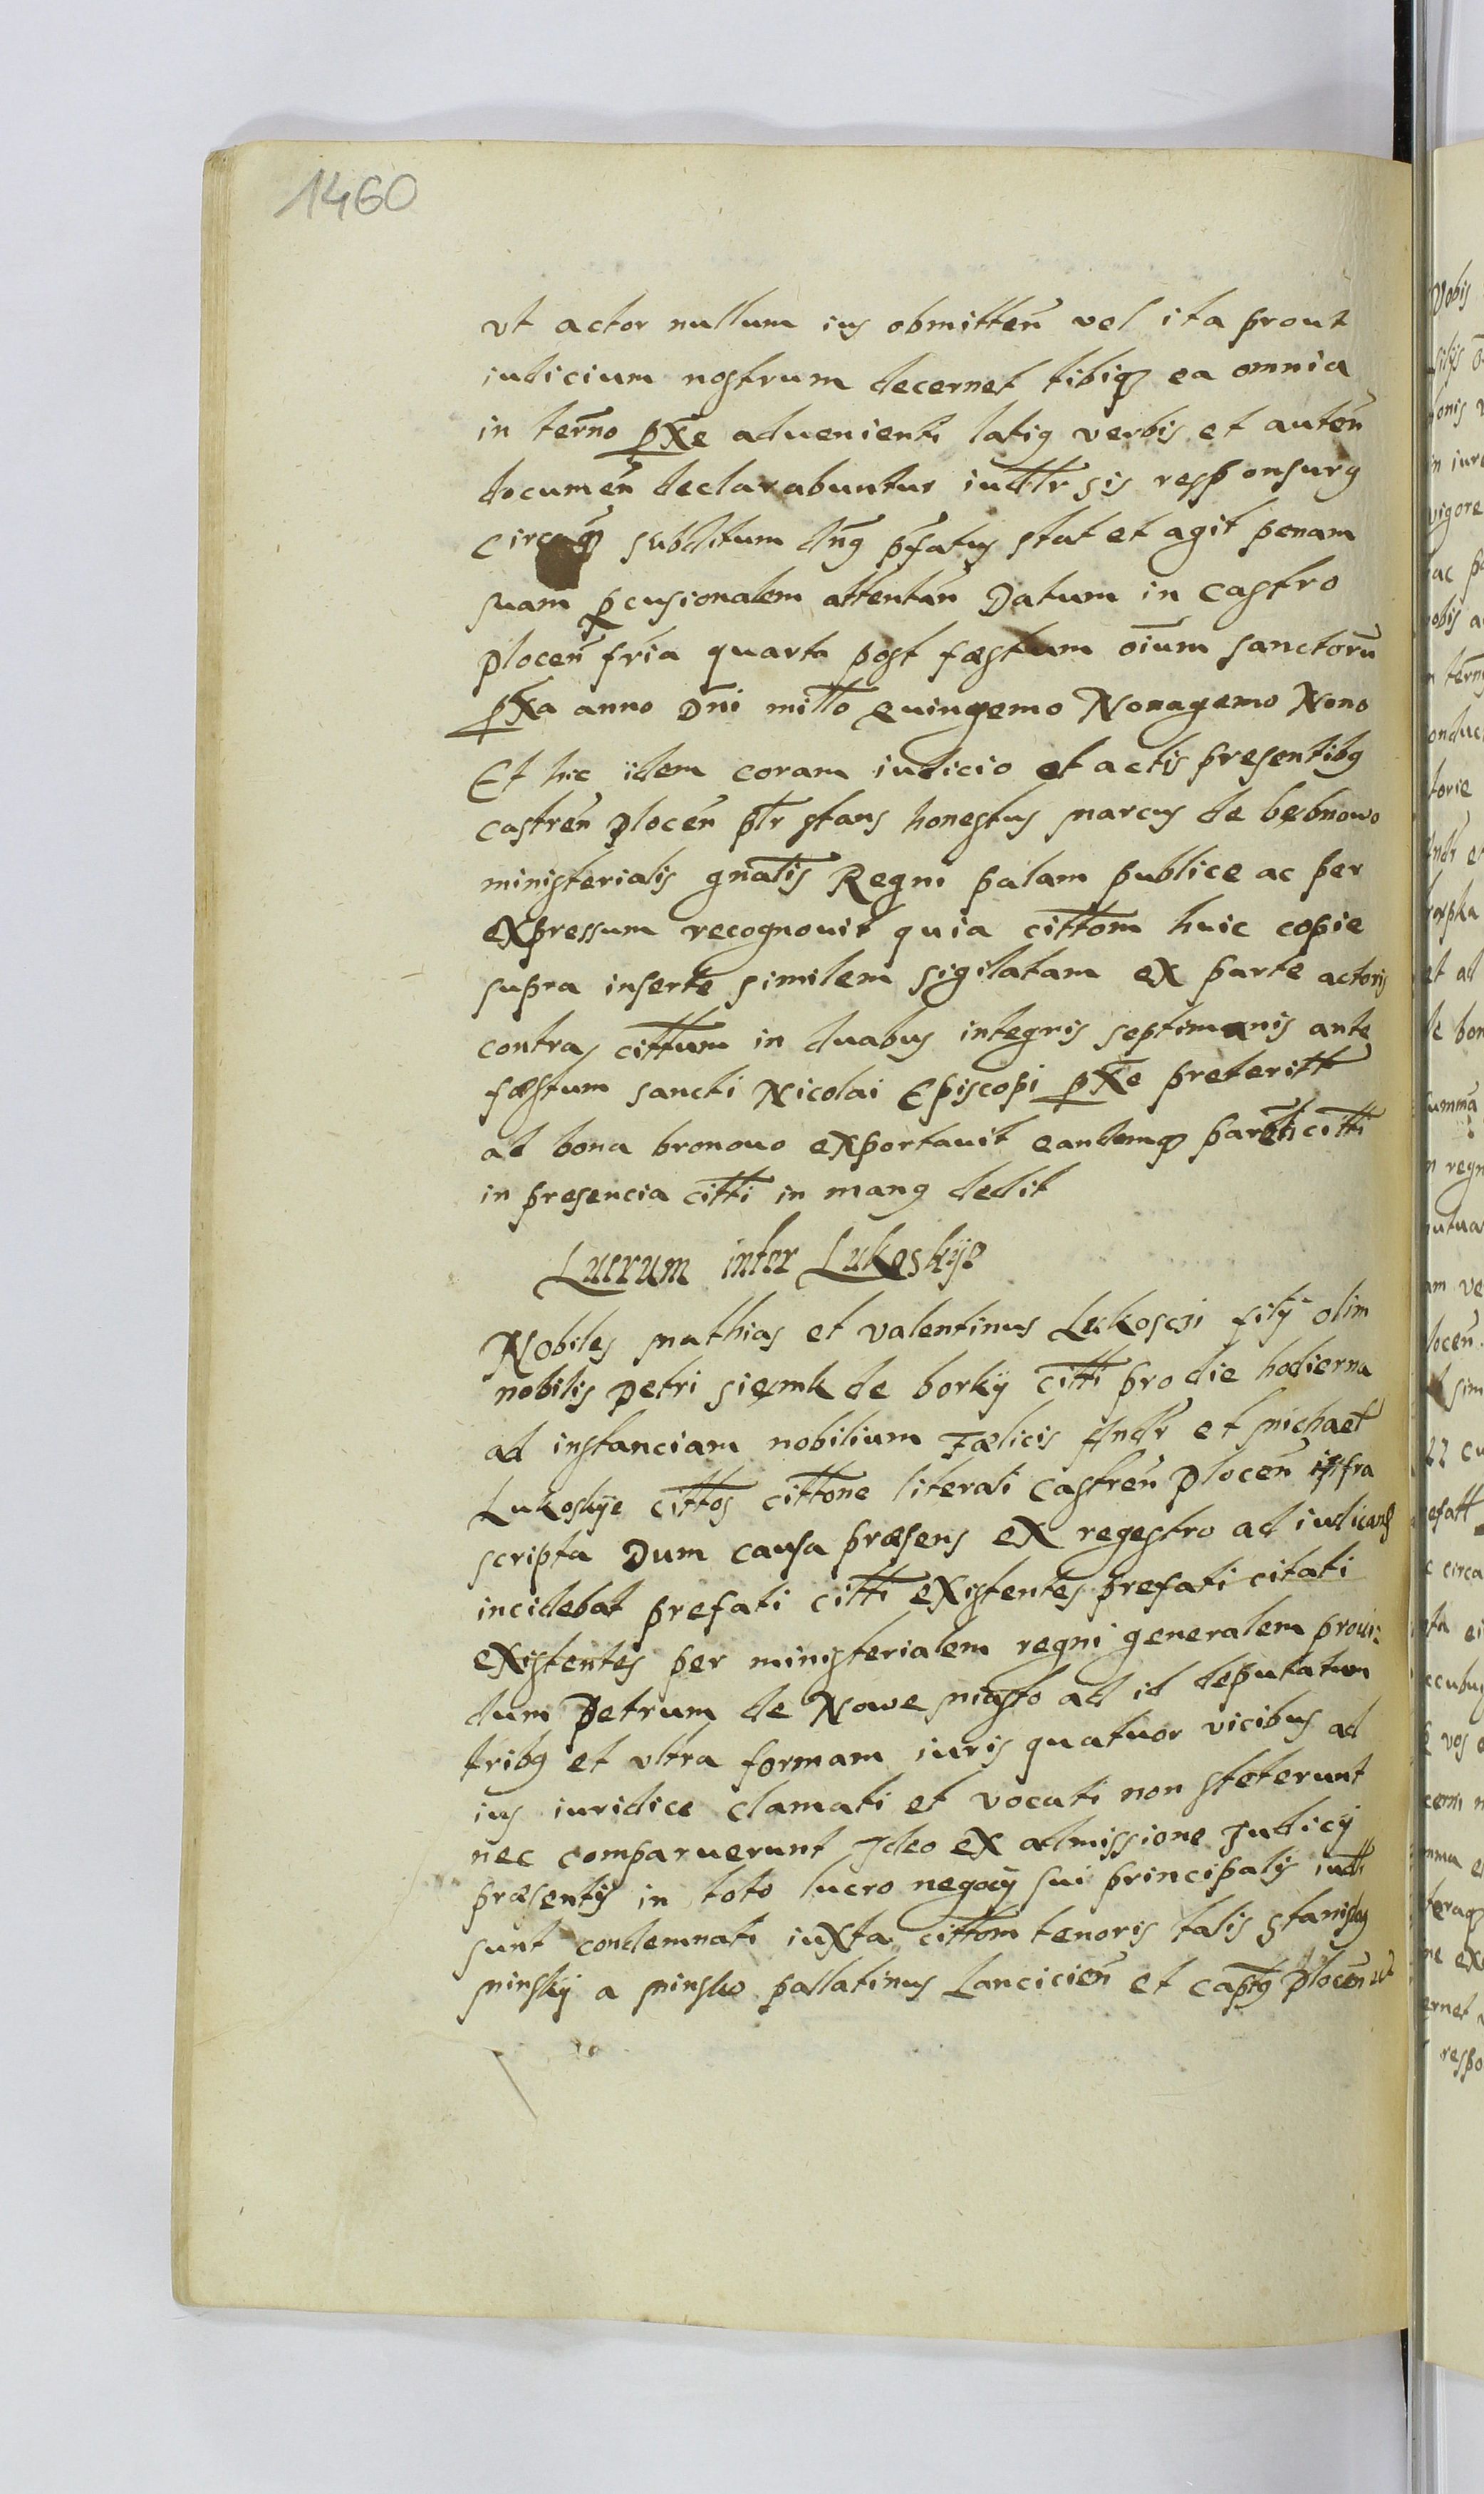 1460
vt actor nullum ius obmitten̄ vel ita prout
iudicium nostrum decernet tibiq3 ea omnia
in term̄no pX̄e aduenienti latig verbis et auten̄
documen̄ declarabuntur iudtr sis responsurg
subditum dng pfatus stat et agit penam
suam pcusionalem attentān Datum in Castro
plocen̄ fria quarta post fæstum oium sanctoru
pX̄a anno Dni mitto quingemo Nonagemo Nono
Et hic idem coram iudicio et actis presentibg
castren̄ plocen̄ ptr stans honestus marcus de bebnowo
ministerialis gnatis Regni palam publice ac per
eXpressum recognouit quia cittom huic copie
supra inserte similem sigilatam eX parte actoris
contras cittum in duabus integris septimanis ante
fæstum sancti Nicolai Episcopi pX̄e preteritt
ad bona bronowo eXportauit eandemq3 citti
in presencia citti in mang dedit
Lucrum inter Lukoskÿe
Nobiles mathias et valentinus Lukoscÿ filÿ olim
nobilis petri siemk de borkÿ citti pro die hodierna
ad instanciam nobilium Fælicis Andr et michaet
Lukoskÿe cittos cittone literati Castren̄ plocen̄ infra
scripta Dum causa præsens eX regestro ad iudicand
incidebat prefati citti eXistentes prefati citati
eXistentes per ministerialem regni generalem proui:
dum petrum de Nowe miasto ad id deputatum
tribg et vltra formam iuris quatuor vicibus ad
ius iuridice clamati et vocati non steterunt
nec comparuerunt Ideo eX admissione Iudicÿ
præsentis in toto lucro negocÿ sui principalis iudti
sunt condemnati iuXta cittom tenoris talis Stanislag
minskÿ a minsko pallatinus Lancicien̄ et captg plocen̄